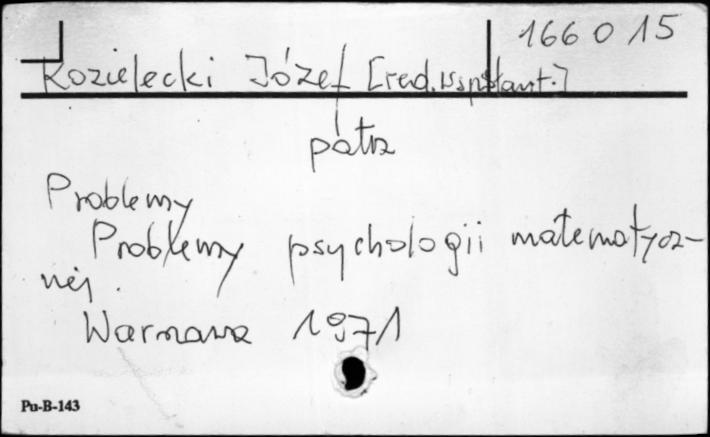 166015
Kozielecki Józef [red. współaut.]
patrz
Problemy
Problemy psychologii matematycz-
nej.
Warszawa 1971
Pu-B-143